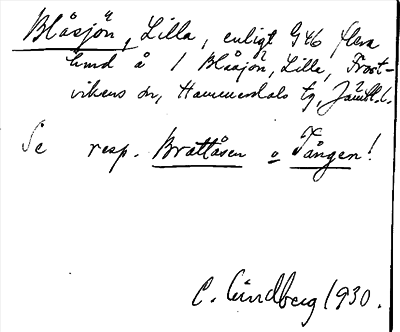 Blåsjön, Lilla, enligt G46 flera
hmd å 1 Blåsjön, Lilla, Frost-
vikens sn, Hammerdals tg, Jämtl. l.
Se resp. Brattåsen o Tången!
C. Lindberg 1930.